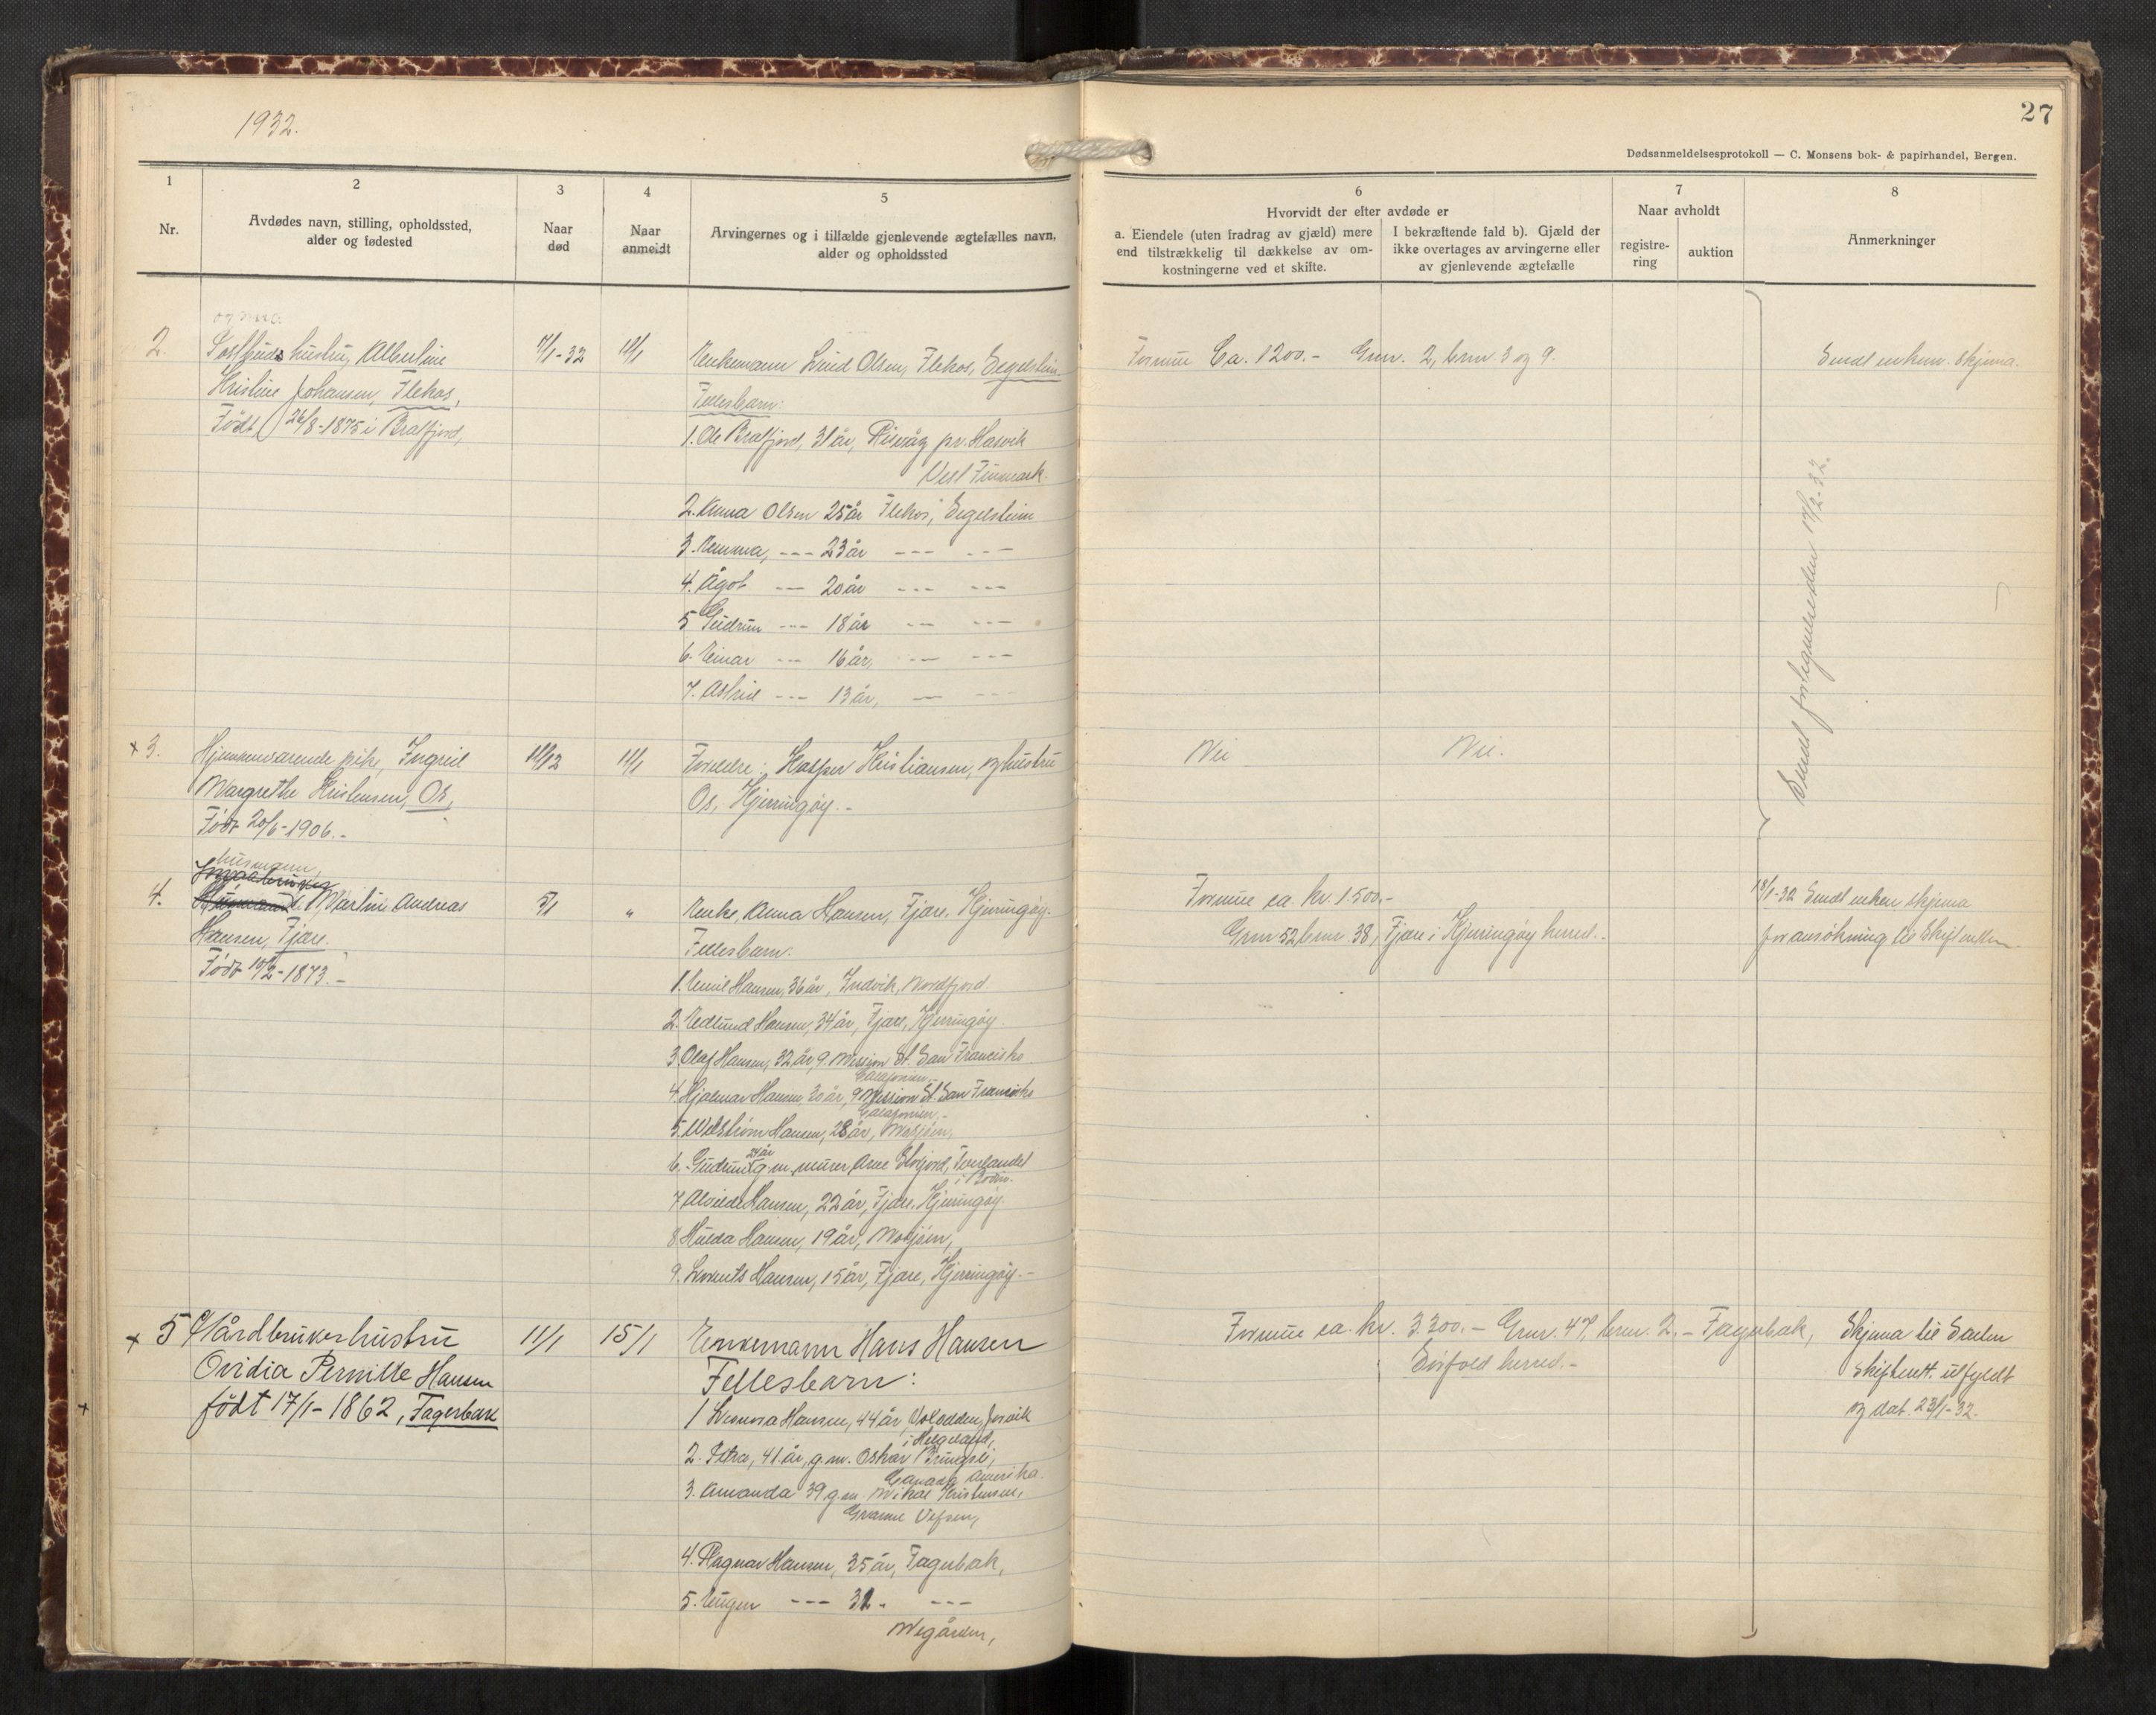 1932.
27
Dødsanmeldelsesprotokoll — C. Monsens bok- & papirhandel, Bergen.
1
Nr.
2
Avdødes navn, stilling, opholdssted,
alder og fødested
3
Naar
død
4
Naar
anmeldt
5
Arvingernes og i tilfælde gjenlevende ægtefælles navn,
alder og opholdssted
6
Hvorvidt der efter avdøde er
a. Eiendele (uten fradrag av gjæld) mere
end tilstrækkelig til dækkelse av om-
kostningerne ved et skifte.
I bekræftende fald b). Gjæld der
ikke overtages av arvingerne eller
av gjenlevende ægtefælle
7
Naar avholdt
registre-
ring
auktion
8
Anmerkninger
2.
hustru, Albertine
Kristine Johansen, Flekos,
Født 26/8-1875 i Bralfjord,
4/1-32
Enkemann Olsen, Flekos,
Fellesbarn:
1. Ole Bralfjord, 31 år, Risvåg pr. Hasvik
Vest Finmark.
2. Anna Olsen 25 år Flekos,
3. Emma, --- 23 år --- ---
4. Ågot --- 20 år --- ---
5 Gudrun --- 18 år --- ---
6. Einar --- 16 år, --- ---
7. Astrid --- 13 år, --- ---
Formue Ca. 1200.- Gnr. 2, bnr. 3 og 9.
Sendt enkem. skjema.
Sendt
x 3.
Hjemmeværende pike, Ingrid
Margrethe Kristensen, Os,
Født 20/6-1906.-
11/1
Foreldre: Kristiansen, og hustru
Os, Kjerringøy.-
Nei
Nei.
4.
husmann,
Martin Andreas
Hansen, Fjære.
Født 10/2-1873.-
5/1
"
Enke, Anna Hansen, Fjære, Kjerringøy.
Fellesbarn.
1. Emil Hansen, 36 år, Indvik, Nordfjord.
2. Edlund Hansen, 34 år, Fjære, Kjerringøy.
3. Olaf Hansen, 32 år, 9. Mission St. San Francisko
4. Hjalmar Hansen, 30 år, 9 Mission St. San Francisko
5. Hansen, 28 år, Mosjøen,
6. Gudrun 24 år g.m. murer Arne
i Bodin.
7 Alvilde Hansen, 22 år, Fjære, Kjerringøy.
8. Hulda Hansen, 19 år, Mosjøen,
9. Lorents Hansen, 15 år, Fjære, Kjerringøy.-
Formue ca. kr. 1500.-
Gnr 52 bnr. 38, Fjære i Kjerringøy herred.-
18/1-32 Sendt enken skjema
for ansökning til Skifteretten.
x 5
Gårdbrukerhustru
Ovidia Pernille Hansen
født 17/1-1862, Fagerbak
11/1
15/1
Enkemann Hans Hansen
Fellesbarn:
1 Hansen, 44 år,
i Helgeland,
2. Petra, 41. år, g.m. Oskar Bringsli,
Canada Amerika.
3. Amanda 39 g.m. Mikal Kristensen,
Vefsen,
4. Ragnar Hansen, 35 år, Fagerbak,
5. Eugen --- 31. ---
Megården,
Formue ca. kr. 3.300.- Gnr. 47, bnr. 2.- Fagerbak,
Sørfold herred.-
Skjema til Salten
Skifterett. utfyldt
og dat. 23/1-32.
x